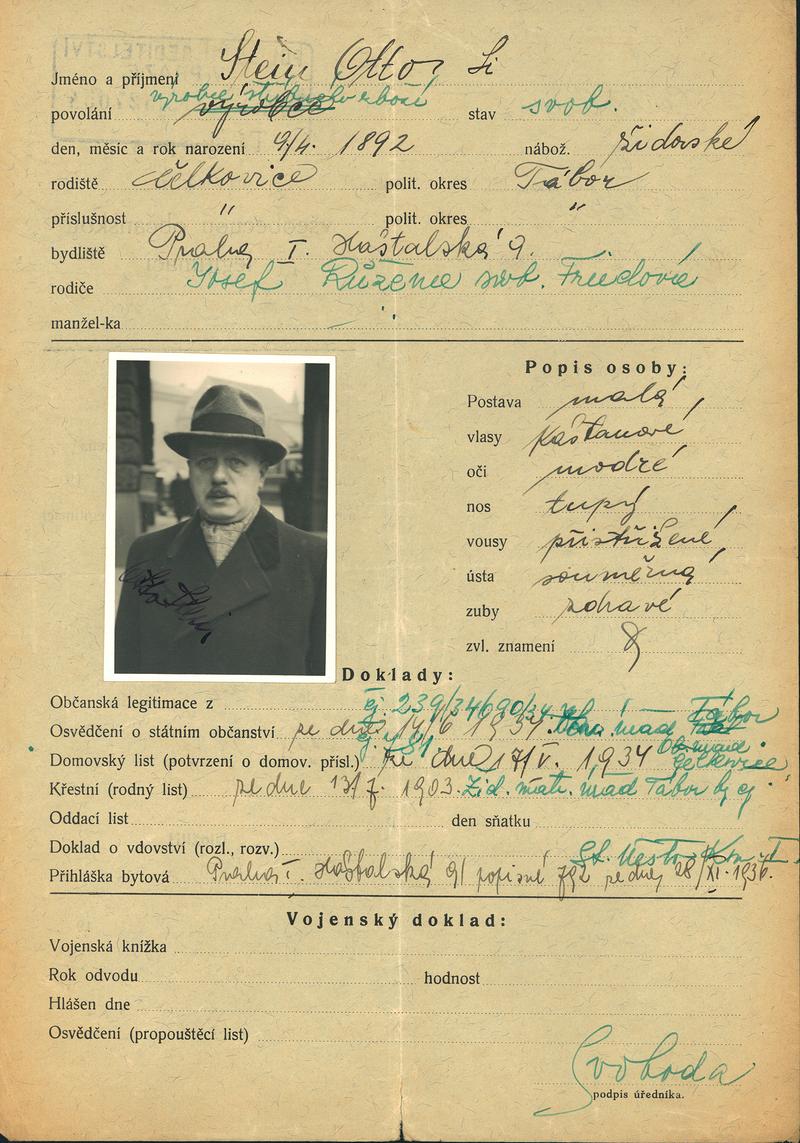 Jméno a příjmení Stein Otto,
povolání výrobce stav svob.
den, měsíc a rok narození 9/4. 1892 nábož. židovské
rodiště Čelkovice polit. okres Tábor
příslušnost " polit. okres "
bydliště Praha I. Haštalská 9.
rodiče Josef Růžena svob. Friedová
manžel-ka
Popis osoby:
Postava malá,
vlasy kaštanové,
oči modré
nos tupý,
vousy přistřižené,
ústa souměrná,
zuby zdravé
zvl. znamení
Otto Stein
Doklady:
Občanská legitimace z
čj. 239/34 Tábor
Osvědčení o státním občanství ze dne 1934.
Domovský list (potvrzení o domov. přísl.) ze dne 17/V. 1934 Čelkovice
Křestní (rodný list) ze dne 13/7. 1903. Žid. matr. úřad Tábor
Oddací list den sňatku
Doklad o vdovství (rozl., rozv.)
Přihláška bytová Praha I. Haštalská 9/ popisné 792 ze dne 28/XI. 1936.
Vojenský doklad:
Vojenská knížka
Rok odvodu hodnost
Hlášen dne
Osvědčení (propouštěcí list)
Svoboda
podpis úředníka.